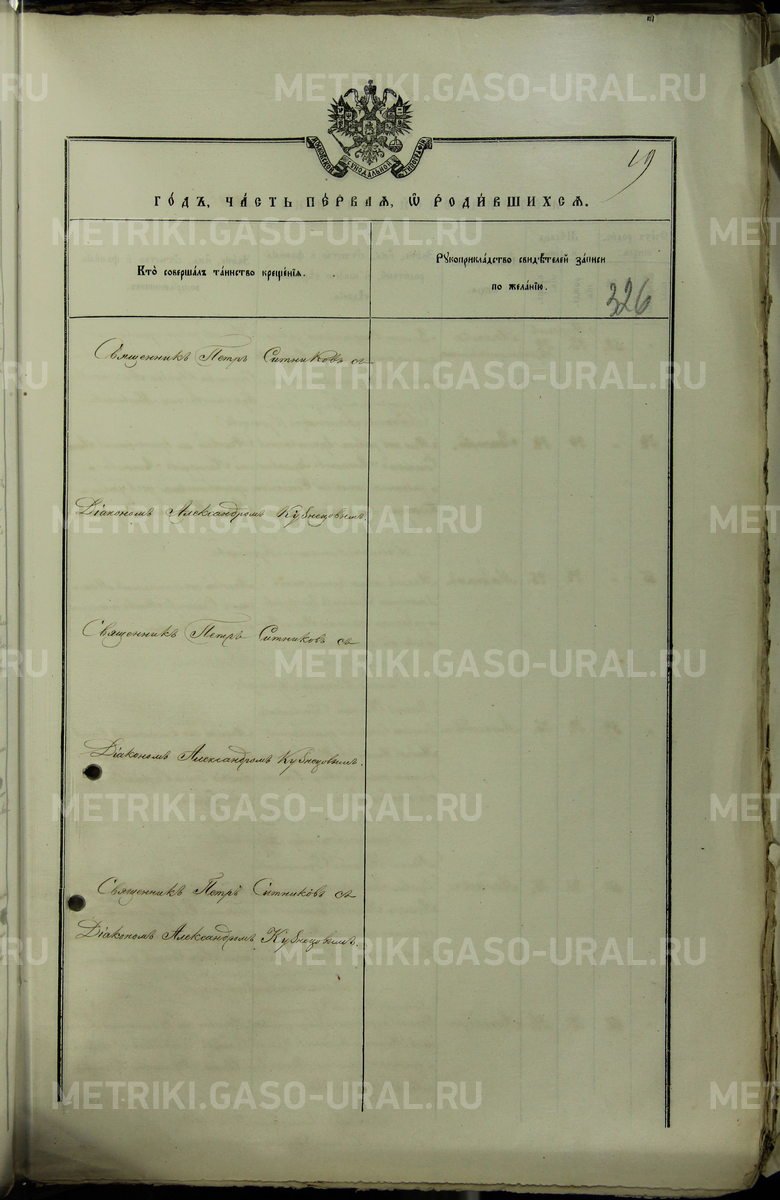 METRIKI.GASO-URAL.RU
МОСКОВСКОЙ СѴНОДАЛЬНОЙ ТИПОГРАФІИ
19
ГО́ДЪ, ЧА́СТЬ ПЕ́РВАЯ, Ѽ РОДИ́ВШИХСЯ.
Кто̀ совершалъ та́инство креще́нїѧ.
Рꙋкоприкла́дство свидѣ́телей за́писи
по жела́нїю.
326
Священникъ Петръ Ситниковъ съ
Діакономъ Александромъ Кузнецовымъ.
Священникъ Петръ Ситниковъ съ
Діакономъ Александромъ Кузнецовымъ.
Священникъ Петръ Ситниковъ съ
Діакономъ Александромъ Кузнецовымъ.